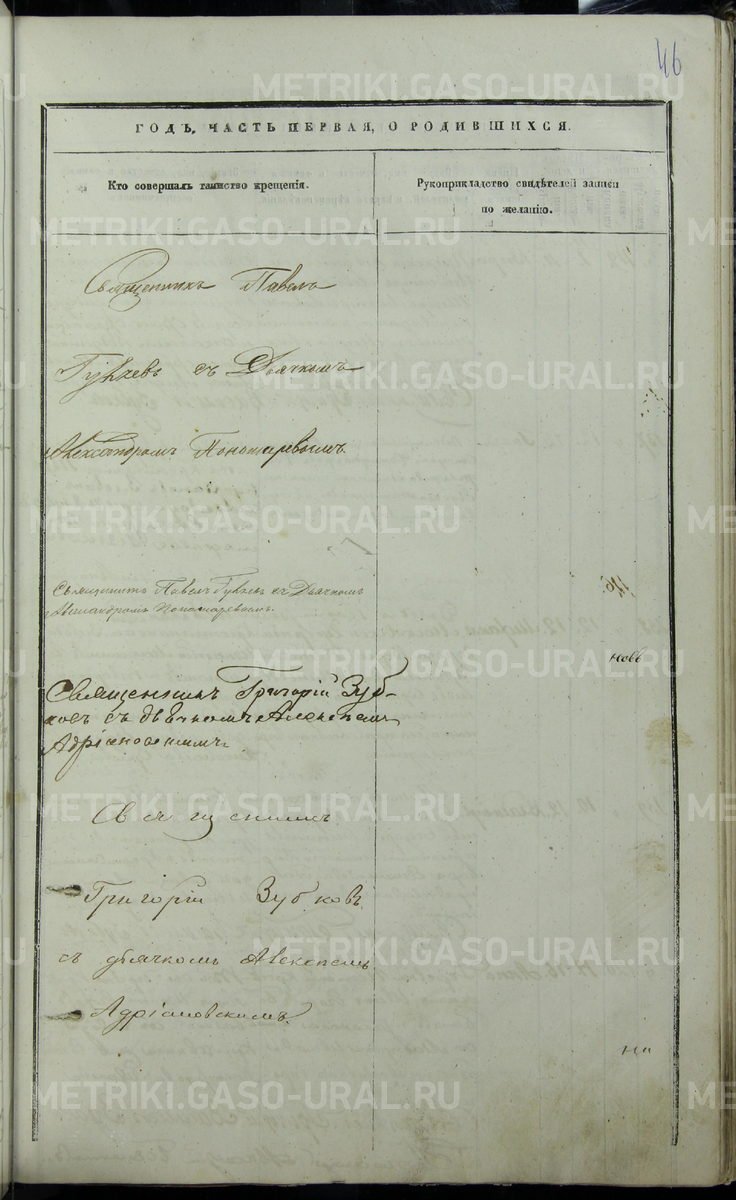 46
ГОДЪ, ЧАСТЬ ПЕРВАЯ, О РОДИВШИХСЯ.
Кто совершалъ таинство крещенія.
Рукоприкладство свидѣтелей записи
по желанію.
Священникъ Павелъ
съ Дьячкомъ
Александромъ Пономаревымъ.
Священникъ Павелъ съ Дьячкомъ
Александромъ Пономаревымъ.
новъ
Священникъ Григорій Зуб-
ковъ съ дьячкомъ Алексѣемъ
Адріановскимъ
Священникъ
Григорій Зубковъ
съ дьячкомъ Алексѣемъ
Адріановскимъ.
на
METRIKI.GASO-URAL.RU